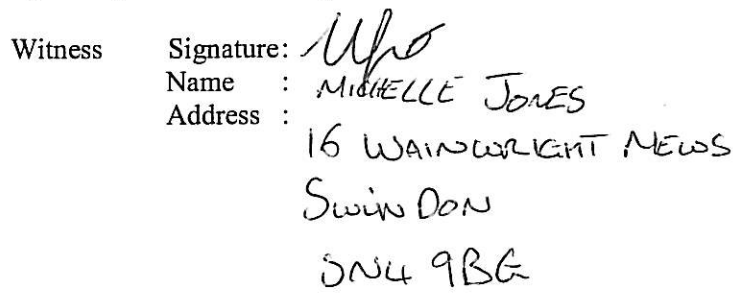 Witness Signature:
Name : MICHELLE JONES
Address :
16 WAINWRIGHT MEWS
SWINDON
SN4 9BG